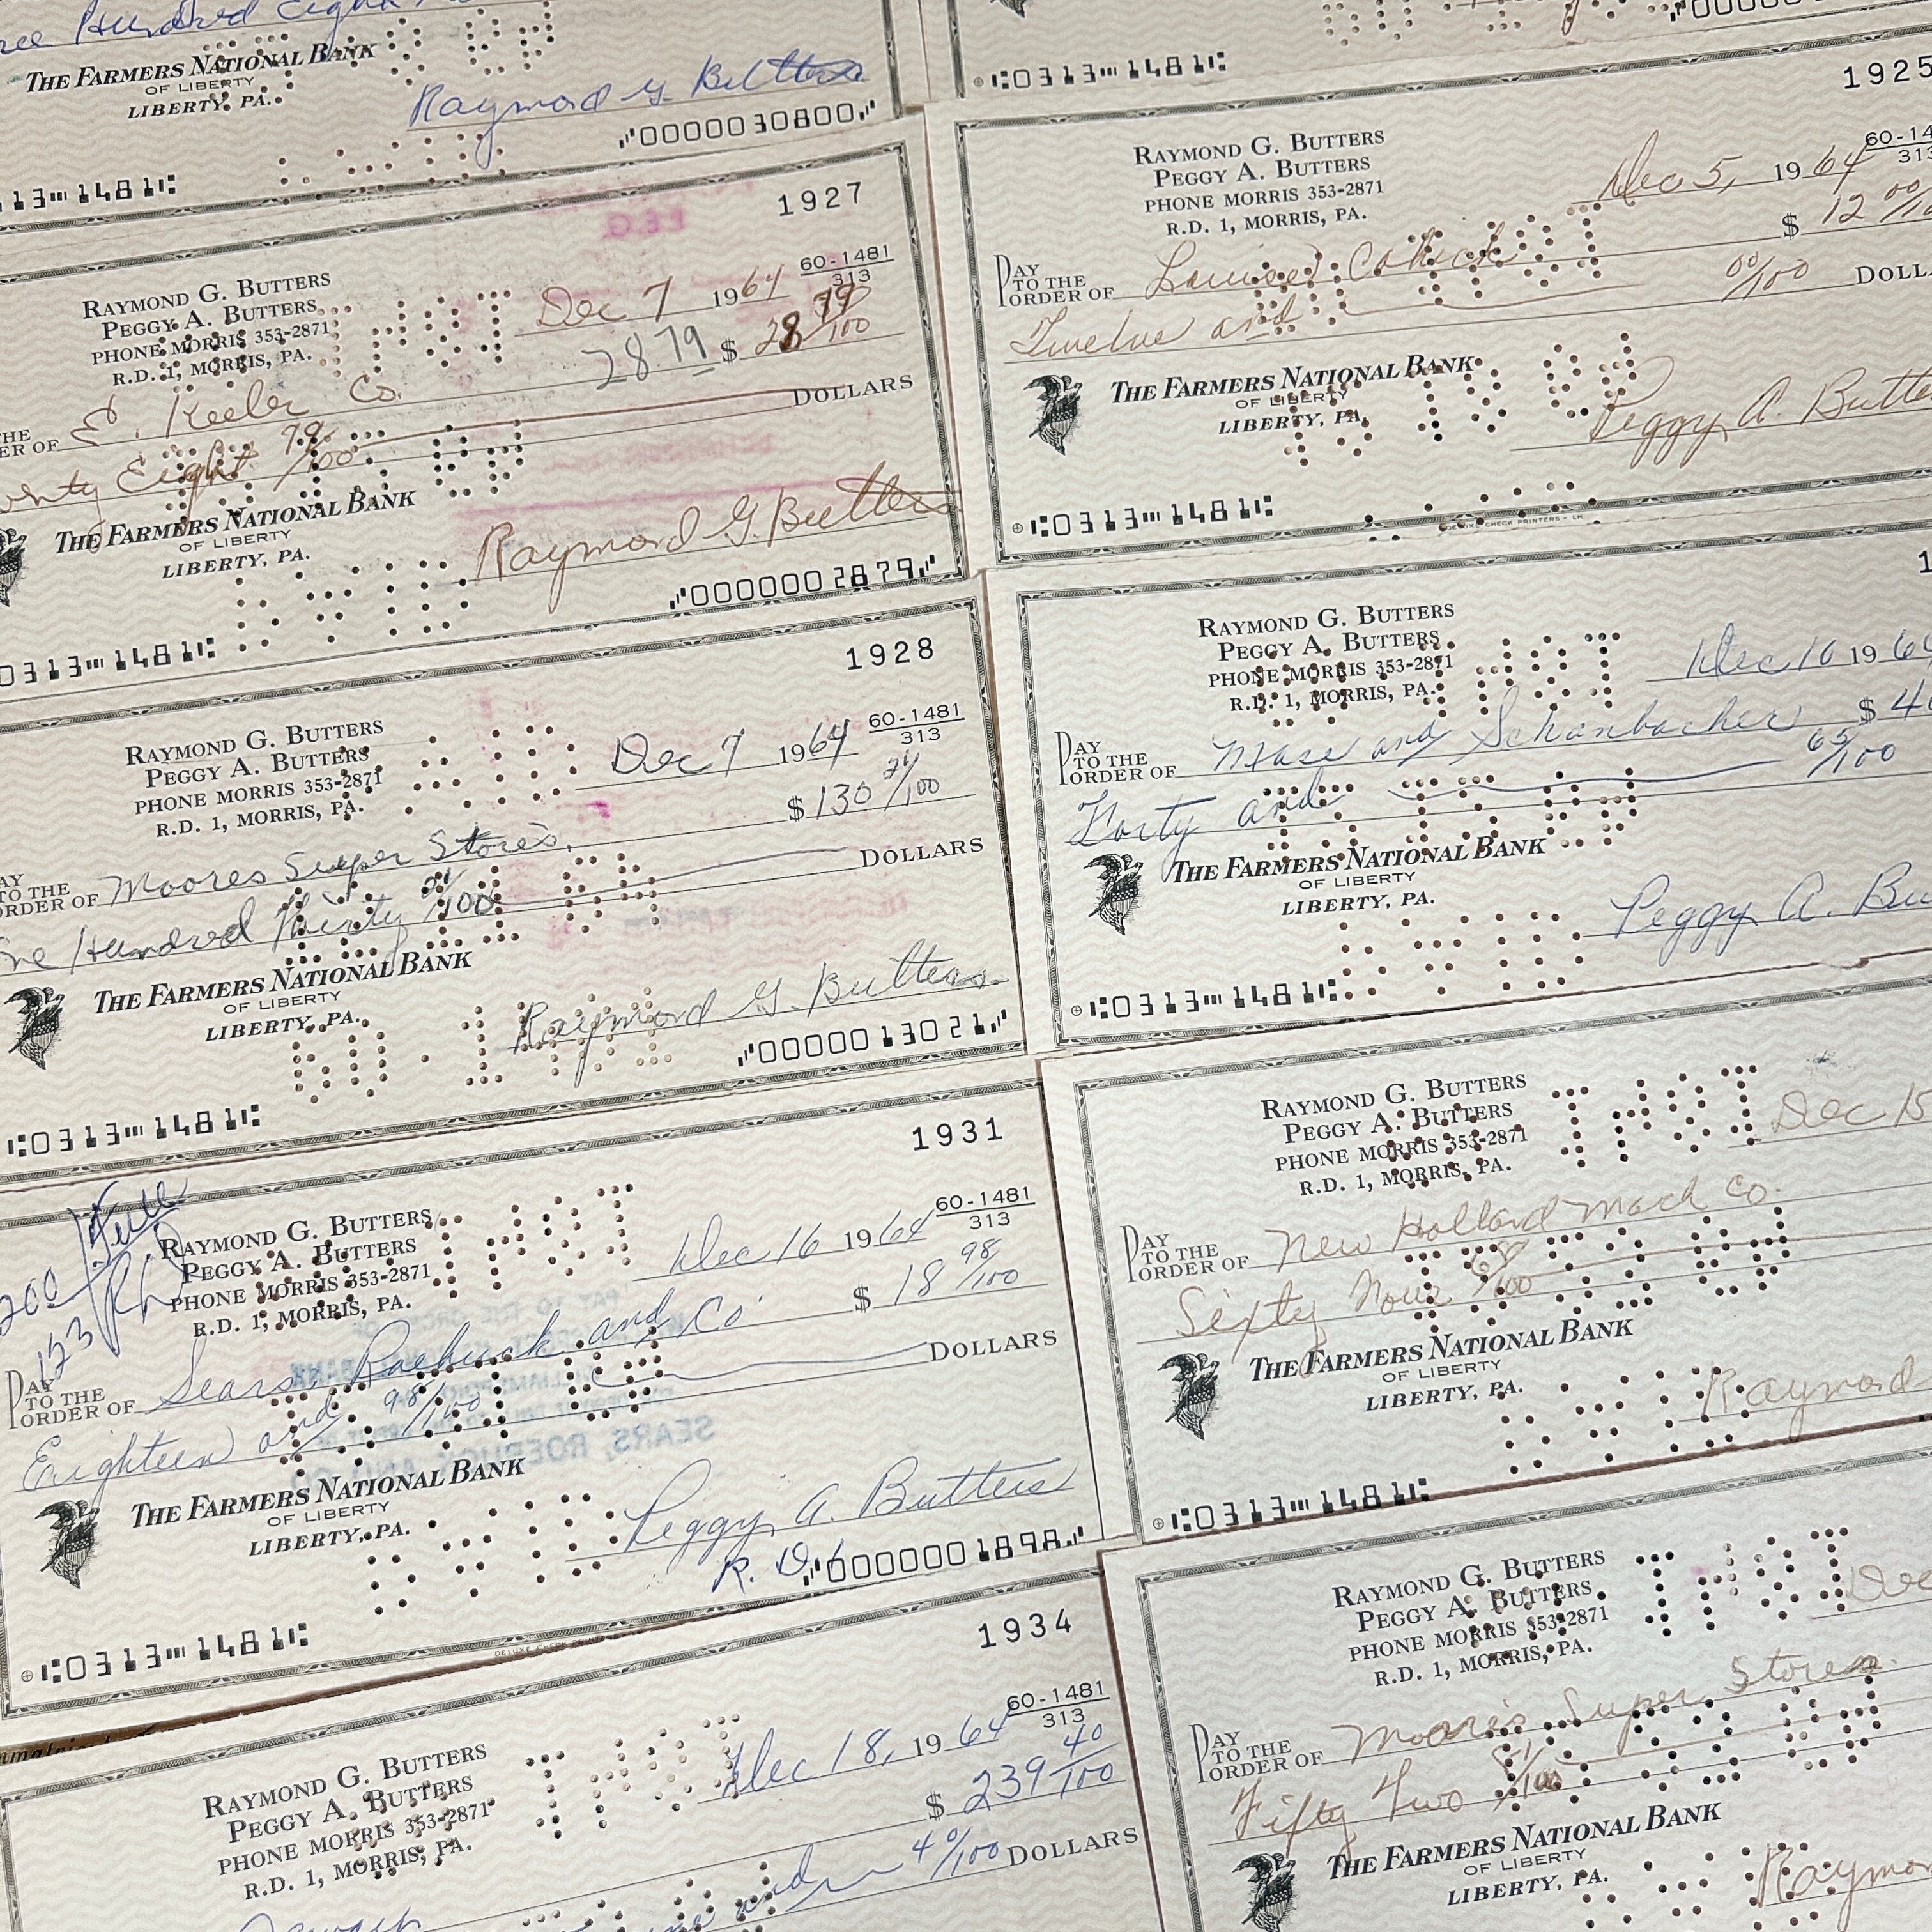 Hundred Eight
THE FARMERS NATIONAL BANK
OF LIBERTY
LIBERTY, PA.
Raymond G. Butters
⑈0000030800⑈
13⑉1481⑆
1927
RAYMOND G. BUTTERS
PEGGY A. BUTTERS
PHONE MORRIS 353-2871
R.D. 1, MORRIS, PA.
Dec 7 1964
60-1481
313
2879 $ 28 79/100
ER OF E. Keeler Co.
DOLLARS
Eight 79/100
THE FARMERS NATIONAL BANK
OF LIBERTY
LIBERTY, PA.
Raymond G. Butters
⑈0000002879⑈
0313⑉1481⑆
1928
RAYMOND G. BUTTERS
PEGGY A. BUTTERS
PHONE MORRIS 353-2871
R.D. 1, MORRIS, PA.
Dec 7 1964
60-1481
313
$ 130 21/100
TO THE
ORDER OF Moores Super Stores.
DOLLARS
Hundred Thirty 21/100
THE FARMERS NATIONAL BANK
OF LIBERTY
LIBERTY, PA.
Raymond G. Butters
⑈0000013021⑈
⑆0313⑉1481⑆
1931
RAYMOND G. BUTTERS
PEGGY A. BUTTERS
PHONE MORRIS 353-2871
R.D. 1, MORRIS, PA.
Dec 16 1964
60-1481
313
$ 18 98/100
PAY
TO THE
ORDER OF Sears, Roebuck and Co
DOLLARS
Eighteen and 98/100
SEARS, ROEBUCK AND CO
THE FARMERS NATIONAL BANK
OF LIBERTY
LIBERTY, PA.
Peggy A. Butters
R. D. 1
⑈0000001898⑈
⑆0313⑉1481⑆
DELUXE CHECK PRINTERS
1934
RAYMOND G. BUTTERS
PEGGY A. BUTTERS
PHONE MORRIS 353-2871
R.D. 1, MORRIS, PA.
Dec 18, 1964
60-1481
313
$ 239 40/100
and 40/100 DOLLARS
⑆0313⑉1481⑆
1925
RAYMOND G. BUTTERS
PEGGY A. BUTTERS
PHONE MORRIS 353-2871
R.D. 1, MORRIS, PA.
Dec 5, 1964
60-14
313
$ 12 00/10
PAY
TO THE
ORDER OF Louise Cohick
Twelve and 00/100 DOLL
THE FARMERS NATIONAL BANK
OF LIBERTY
LIBERTY, PA.
Peggy A Butte
⑆0313⑉1481⑆
CHECK PRINTERS - LR
RAYMOND G. BUTTERS
PEGGY A. BUTTERS
PHONE MORRIS 353-2871
R.D. 1, MORRIS, PA.
Dec 10 196
PAY
TO THE
ORDER OF Mase and Schanbacher $ 4
Forty and 65/100
THE FARMERS NATIONAL BANK
OF LIBERTY
LIBERTY, PA.
Peggy A. Bu
⑆0313⑉1481⑆
RAYMOND G. BUTTERS
PEGGY A. BUTTERS
PHONE MORRIS 353-2871
R.D. 1, MORRIS, PA.
Dec 15
PAY
TO THE
ORDER OF New Holland Mach Co.
Sixty Four 68/100
THE FARMERS NATIONAL BANK
OF LIBERTY
LIBERTY, PA.
Raymond
⑆0313⑉1481⑆
RAYMOND G. BUTTERS
PEGGY A. BUTTERS
PHONE MORRIS 353-2871
R.D. 1, MORRIS, PA.
Dec
PAY
TO THE
ORDER OF Moores Super Stores.
Fifty Two 51/100
THE FARMERS NATIONAL BANK
OF LIBERTY
LIBERTY, PA.
Raymon